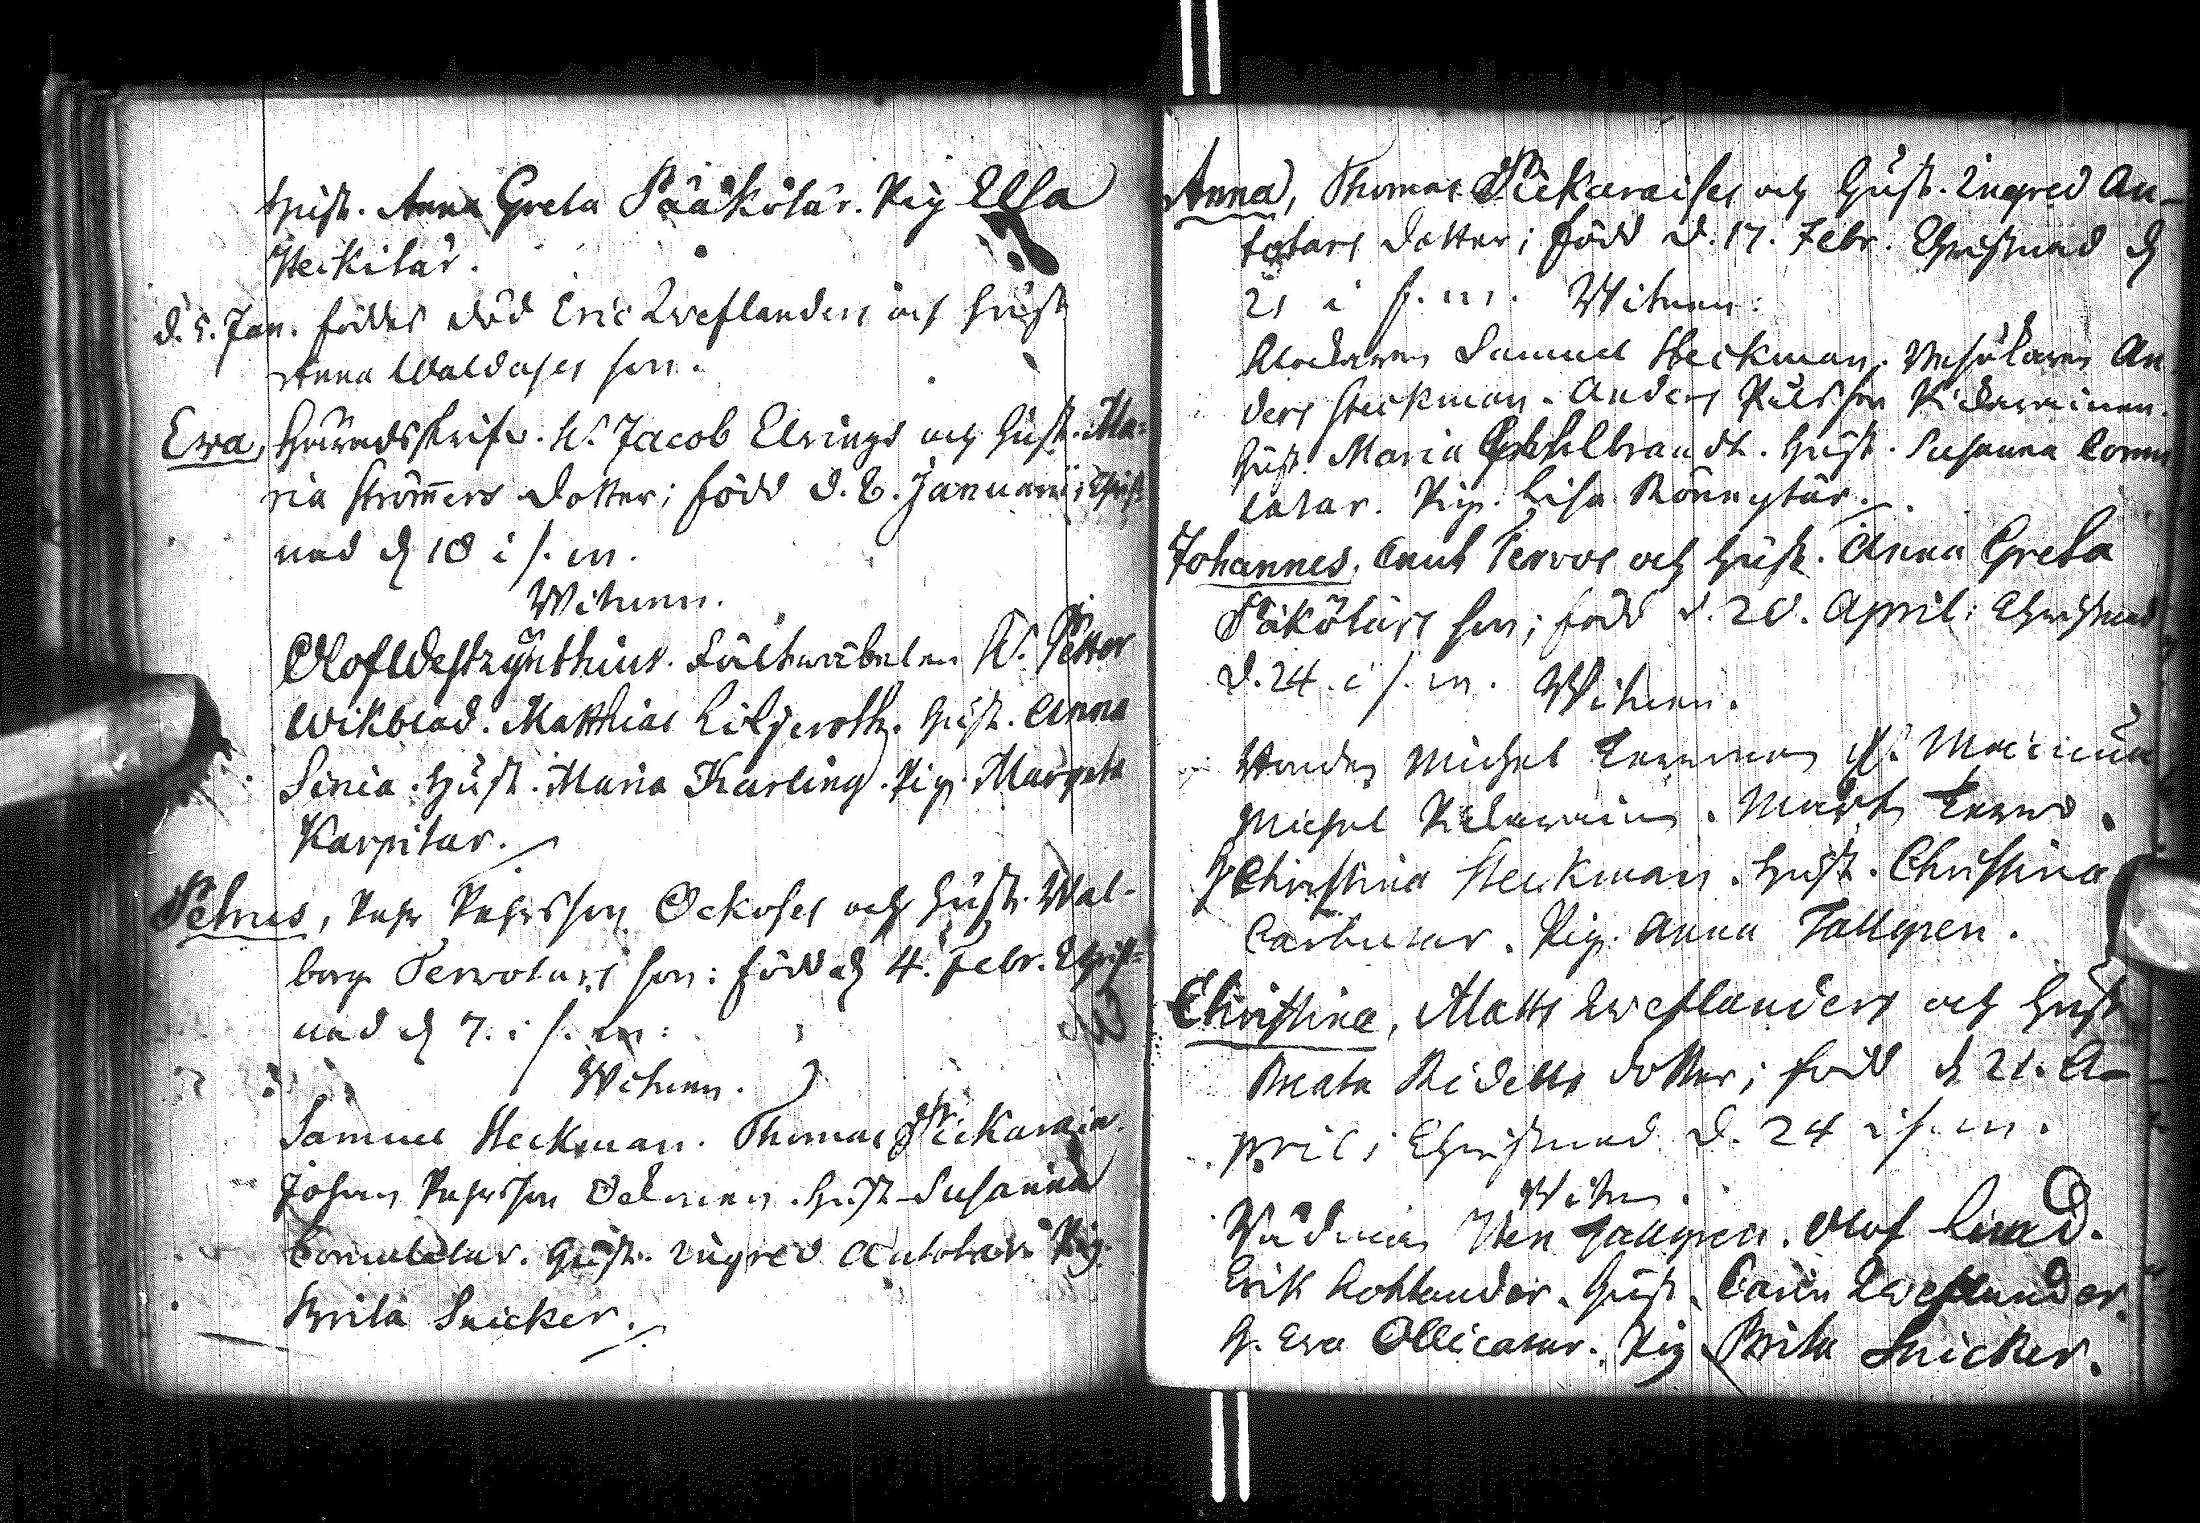 Hust. Anna Greta Pääkötär. Pig. Elsa
Heikitär.
d. 5. Jan. föddes död Eric Zweflanders och Hust
Anna Waldases son.
Eva, Häradsskrifv. Hr. Jacob Elvings och Hust. Ma-
ria Strömmers dotter; född d. 8. Januarii; Christ-
nad d 18 i s. m.
Witnen.
Olof Westzynthius. Fältwäbelen Hr. Petter
Wikblad. Matthias Liljeroth. Hust. Anna
Sinia. Hust. Maria Karling. Pig. Margeta
Karpitar.
Petrus, Pehr Pehrsson Ockoses och Hust. Wal-
borg Terwotars son: född d 4. Febr. Christ-
nad d 7. i s. m:
Witnen.
Samuel Heckman. Thomas Pickarain.
Johan Pehrsson Ockoinen. Hust. Susanna
Comulatar. Hust. Ingred Antotar. Pig.
Brita Snicker.
Anna, Thomas Pickaraises och Hust. Ingred An-
totars dotter; född d. 17. Febr. Christnad d
21 i s. m. Witnen:
Klockaren Samuel Heckman. An-
ders Heckman. Anders Pålsson Pickarainen.
Hust. Maria Hust. Susanna Comu-
latar. Pig. Lisa
Johannes, Cnut Terwos och Hust. Anna Greta
Päkötärs son; född d. 20. April: Christnad
d. 24. i s. m. Witnen.
Michel
Michel Pickarain. Mårt. Terwo.
H. Christina Heckman. Hust. Christina
Pig. Anna Tallgren.
Christina, Matts Zweflanders och Hust
Beata Ridells dotter; född d 21. A-
pril; Christnad d. 24 i s. m.
Witn.
Iven Tallgren. Olof Lind.
Erik Hust. Carin Zweflander.
H. Eva Ollicatar. Pig Brita Snicker.